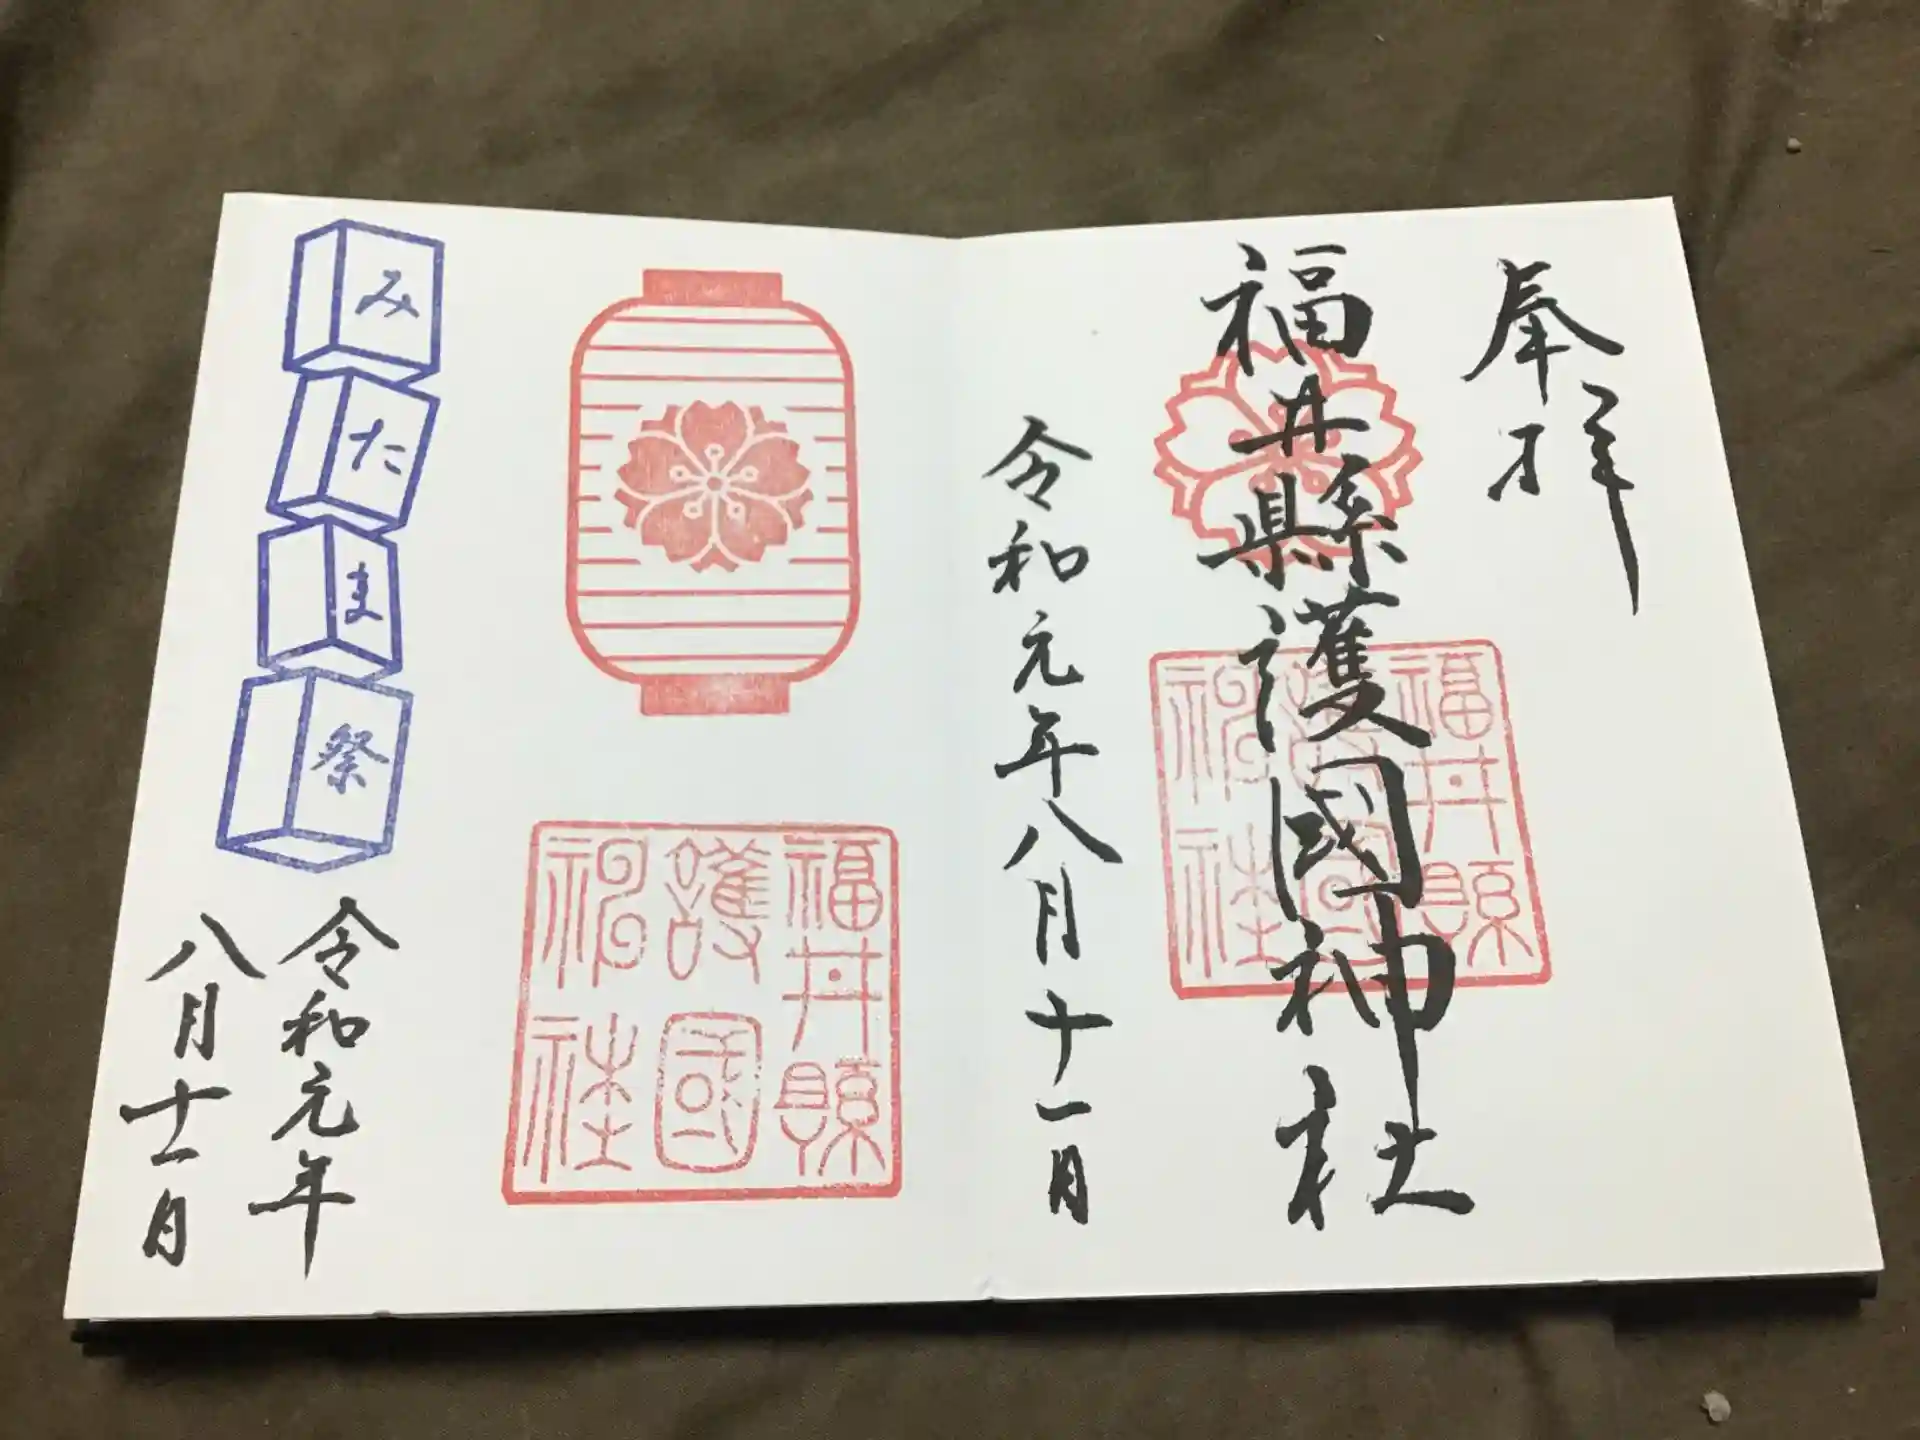 奉拝
福井縣護國神社
福井縣
護國
神社
令和元年八月十一日
福井縣
護國
神社
みたま祭
令和元年
八月十一日